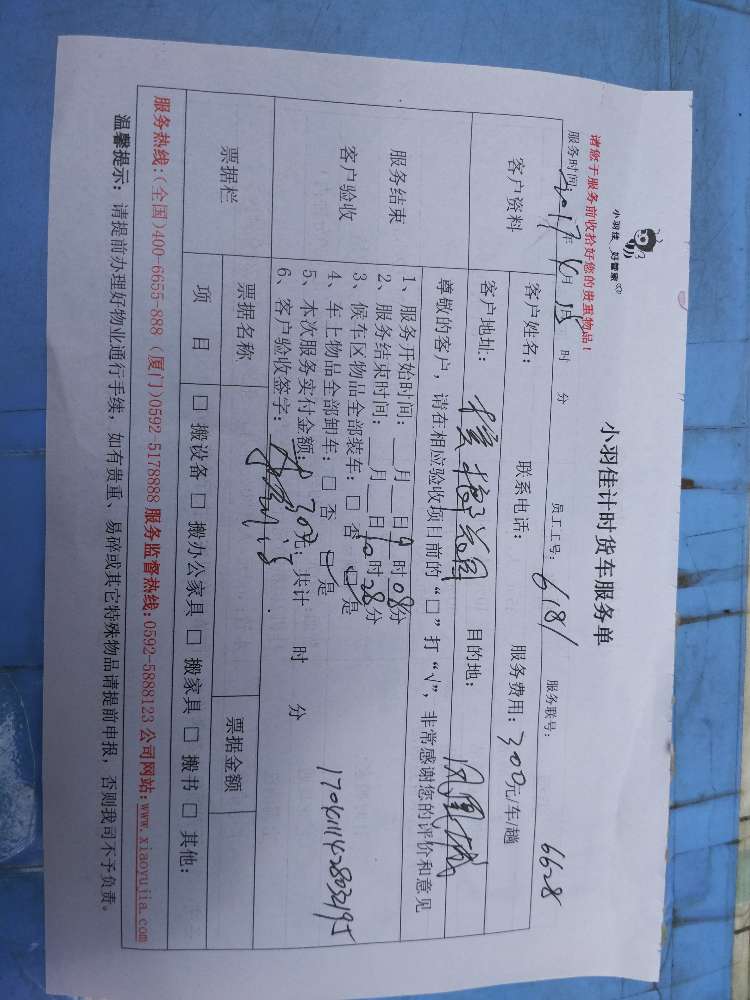 小羽佳 好管家
请您于服务前收拾好您的贵重物品！
小羽佳计时货车服务单
服务时间: 2017年 6月 15 时 分 员工工号: 6181 服务联号: 6628
客户资料
客户姓名: 联系电话: 服务费用: 300元/车/趟
客户地址: 目的地: 凤凰城
服务结束
客户验收
尊敬的客户，请在相应验收项目前的“□”打“√”，非常感谢您的评价和意见
1、服务开始时间: __月__日 9时 08分
2、服务结束时间: __月__日 10时 28分
3、候车区物品全部装车: □ 否 ☑ 是
4、车上物品全部卸车: □ 否 ☑ 是
5、本次服务实付金额: 300元; 共计 时 分
6、客户验收签字:
票据栏
票据名称 票据金额
项 目 □ 搬设备 □ 搬办公家具 □ 搬家具 □ 搬书 □ 其他:
服务热线:(全国)400-6655-888 (厦门)0592-5178888 服务监督热线:0592-5888123 公司网站:www.xiaoyujia.com
温馨提示: 请提前办理好物业通行手续，如有贵重、易碎或其它特殊物品请提前申报，否则我司不予负责。